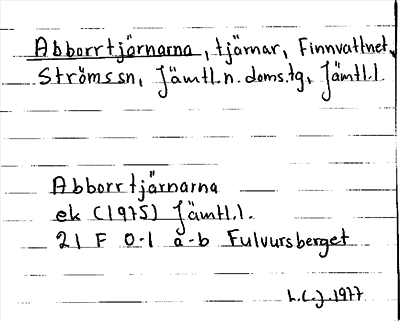 Abborrtjärnarna, tjärnar, Finnvattnet,
Strömssn, Jämtl.n.doms.tg, Jämtl.l
Abborrtjärnarna
ek (1975) Jämtl.l.
21 F 0-1 a-b Fulvursberget
L.C.J. 1977